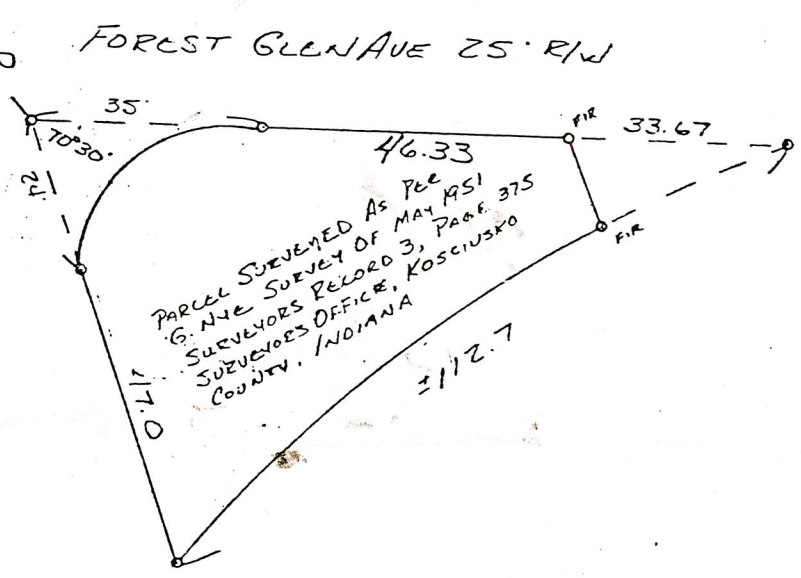 FOREST GLEN AVE 25' R/W
35'
70°30'
46.33
FIR
33.67
FIR
PARCEL SURVEYED AS PER
G. NYE SURVEY OF MAY 1951
SURVEYORS RECORD 3, PAGE 375
SURVEYORS OFFICE, KOSCIUSKO
COUNTY, INDIANA
±112.7